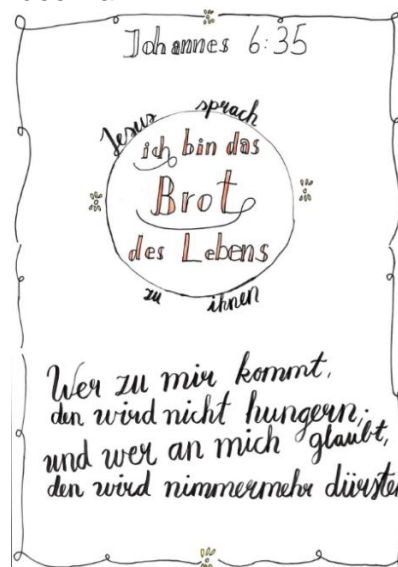 Johannes 6:35
Jesus sprach
ich bin das
Brot
des Lebens
zu ihnen
Wer zu mir kommt,
den wird nicht hungern;
und wer an mich glaubt,
den wird nimmermehr dürste